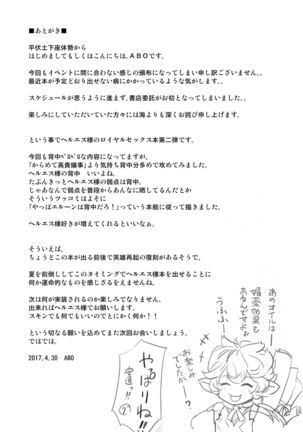 ■あとがき■
平伏土下座体勢から
はじめまして もしくは こんにちは、ABOです。
今回もイベントに間に合わない感じの頒布になってしまい申し訳ございません。。
最近本が予定どおり出せない病にかかっているような気がします。。
スケジュールが思うように進まず、書店委託がお初となってしまいました。。
楽しみにしていただいていた方々には海よりも深くお詫び申し上げます。
という事でヘルエス様のロイヤルセックス本第二弾です。
今回も背中ﾍﾞﾛﾍﾞﾛな内容になってますが、
「からめて高貴嬢事」より気持ち背中分多めで攻めてみました。
ヘルエス様の背中 いいよね。
たぶんきっとヘルエス様の弱点は背中、
じゃあなんで弱点を普段からあんなに晒してるんだとか
そういうヴッロミはよそに
「やっぱエルーンは背中だろ！」っていう本能に従って描きました。
ヘルエス様好きが増えてくれるといいなぁ。
そういえば、
ちょうどこの本が出る前後で英雄再起の復刻があるそうで。
夏を前倒ししてこのタイミングでヘルエス様本を出せることに
何か運命的なものを感じざるをえませんね。
次は何が実装されるのか楽しみでなりません。
出来ればヘルエス様でお願いします。
スキンでも何でもいいのでとにかく何か！！
という切なる願いを込めてまた次回お会いしましょう。
ではでは。
2017.4.30 ABO
あのオイルは
媚薬効果も
あるんですよぉ
うふふ
お楽しみ
でしたか〜？
やっぱりね!!